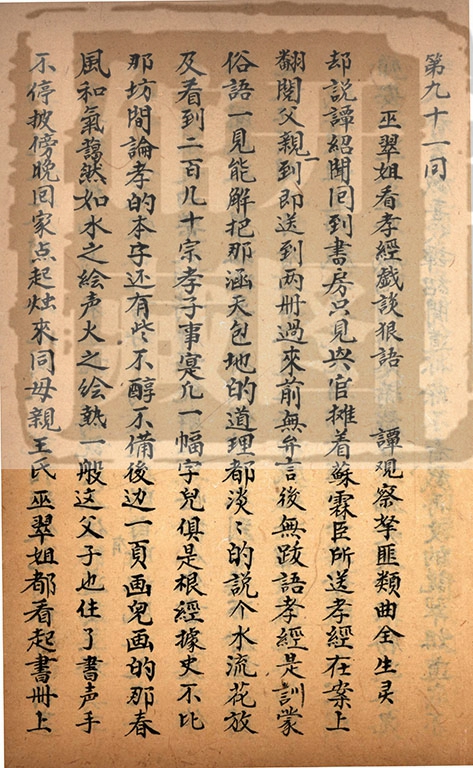 第九十一囘
巫翠姐看孝經戯談狠語　譚观察拏匪類曲全生灵
却説譚紹聞囘到書房只見㒷官摊着蘇霖臣所送孝經在案上
翻閲父親一到即送到两册過來前無弁言後無跋語孝經是訓蒙
俗語一見能解把那涵天包地的道理都淡〻的説个水流花放
及看到二百几十宗孝子事寔凢一幅字兒俱是根經據史不比
那坊間論孝的本子还有些不醇不備後边一頁画兒画的那春
風和氣藹然如水之绘声火之绘熱一般这父子也住了書声手
不停披傍晚囘家点起烛來同母親王氏巫翠姐都看起書册上